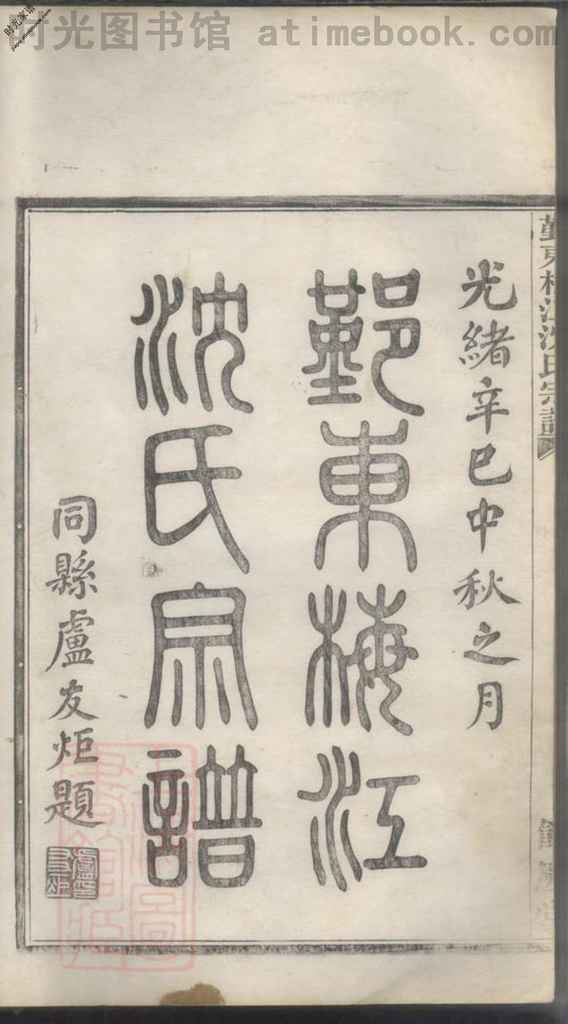 时光图书馆 atimebook.com
光緒辛巳中秋之月
鄞東梅江
沈氏宗譜
同縣盧友炬題
鄞東梅江沈氏宗譜